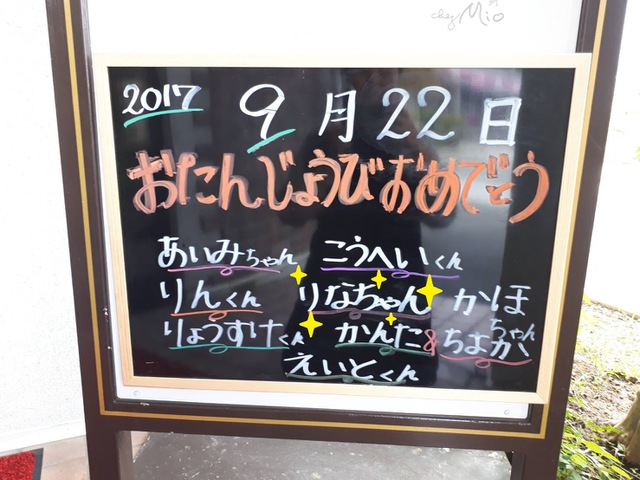 chez Mio
2017 9月22日
おたんじょうびおめでとう
あいみちゃん こうへいくん
りんくん りなちゃん かほ
りょうすけくん かんた&ちよかちゃん
えいとくん